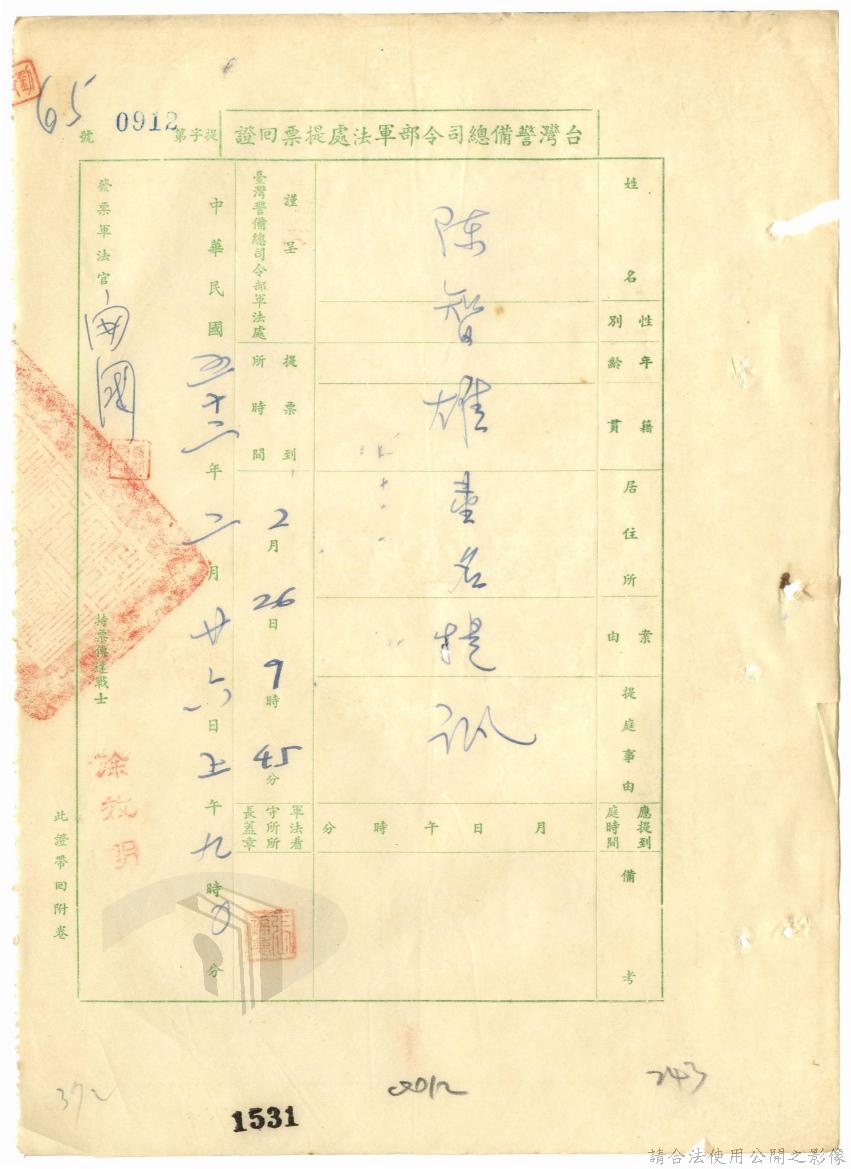 65
提字第0912號
台灣警備總司令部軍法處提票回證
姓名
性別
年齡
籍貫
居住所
案由
提庭事由
應提到庭時間
備考
陳智雄壹名提訊
月日午時分
謹呈
臺灣警備總司令部軍法處
提票到所時間
2月26日9時45分
軍法看守所所長蓋章
中華民國五十二年二月廿六日上午九時分
發票軍法官
持票傳達戰士
此證帶回附卷
372
1531
243
請合法使用公開之影像